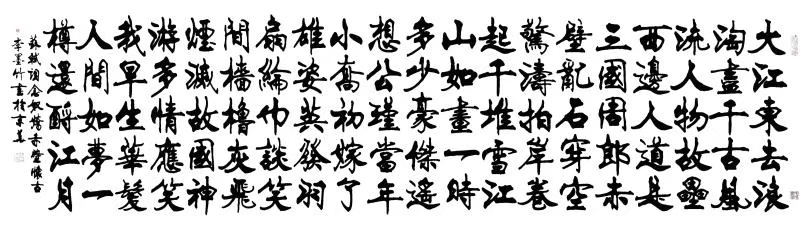 大江東去浪
淘盡千古風
流人物故壘
西邊人道是
三國周郎赤
壁亂石穿空
驚濤拍岸卷
起千堆雪江
山如畫一時
多少豪傑遙
想公瑾當年
小喬初嫁了
雄姿英發羽
扇綸巾談笑
間檣櫓灰飛
煙滅故國神
游多情應笑
我早生華髮
人間如夢一
樽還酹江月
蘇軾詞念奴嬌赤壁懷古
李墨竹書於京華